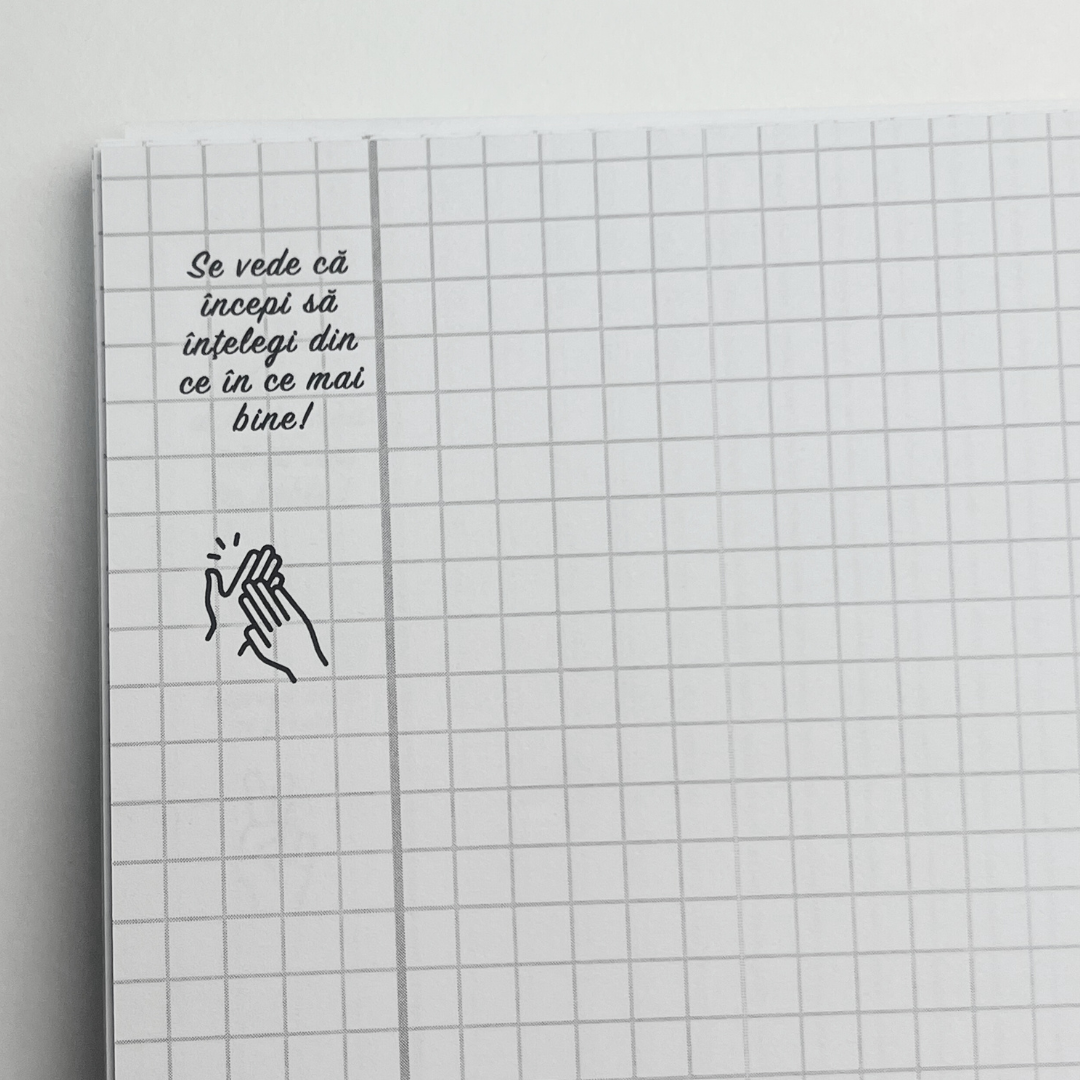 Se vede că
începi să
înţelegi din
ce în ce mai
bine!